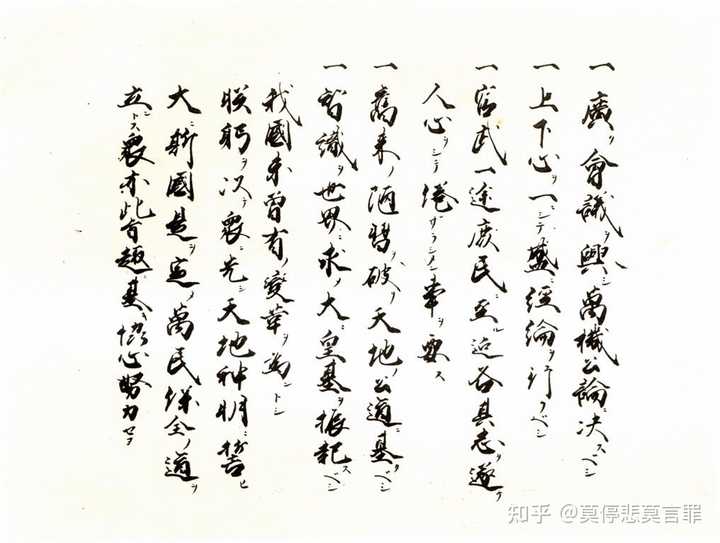 一 廣ク會議ヲ興シ萬機公論ニ決スベシ
一 上下心ヲ一ニシテ盛ニ經綸ヲ行フベシ
一 官武一途庶民ニ至ル迄各其志ヲ遂ケ
人心ヲシテ倦サラシメン事ヲ要ス
一 舊来ノ陋習ヲ破リ天地ノ公道ニ基クベシ
一 智識ヲ世界ニ求メ大ニ皇基ヲ振起スベシ
我國未曽有ノ變革ヲ為ントシ
朕躬ヲ以テ衆ニ先シ天地神明ニ誓ヒ
大ニ斯國是ヲ定メ萬民保全ノ道ヲ
立ントス衆亦此旨趣ニ基キ協心努力セヨ
知乎 @莫停悲莫言罪